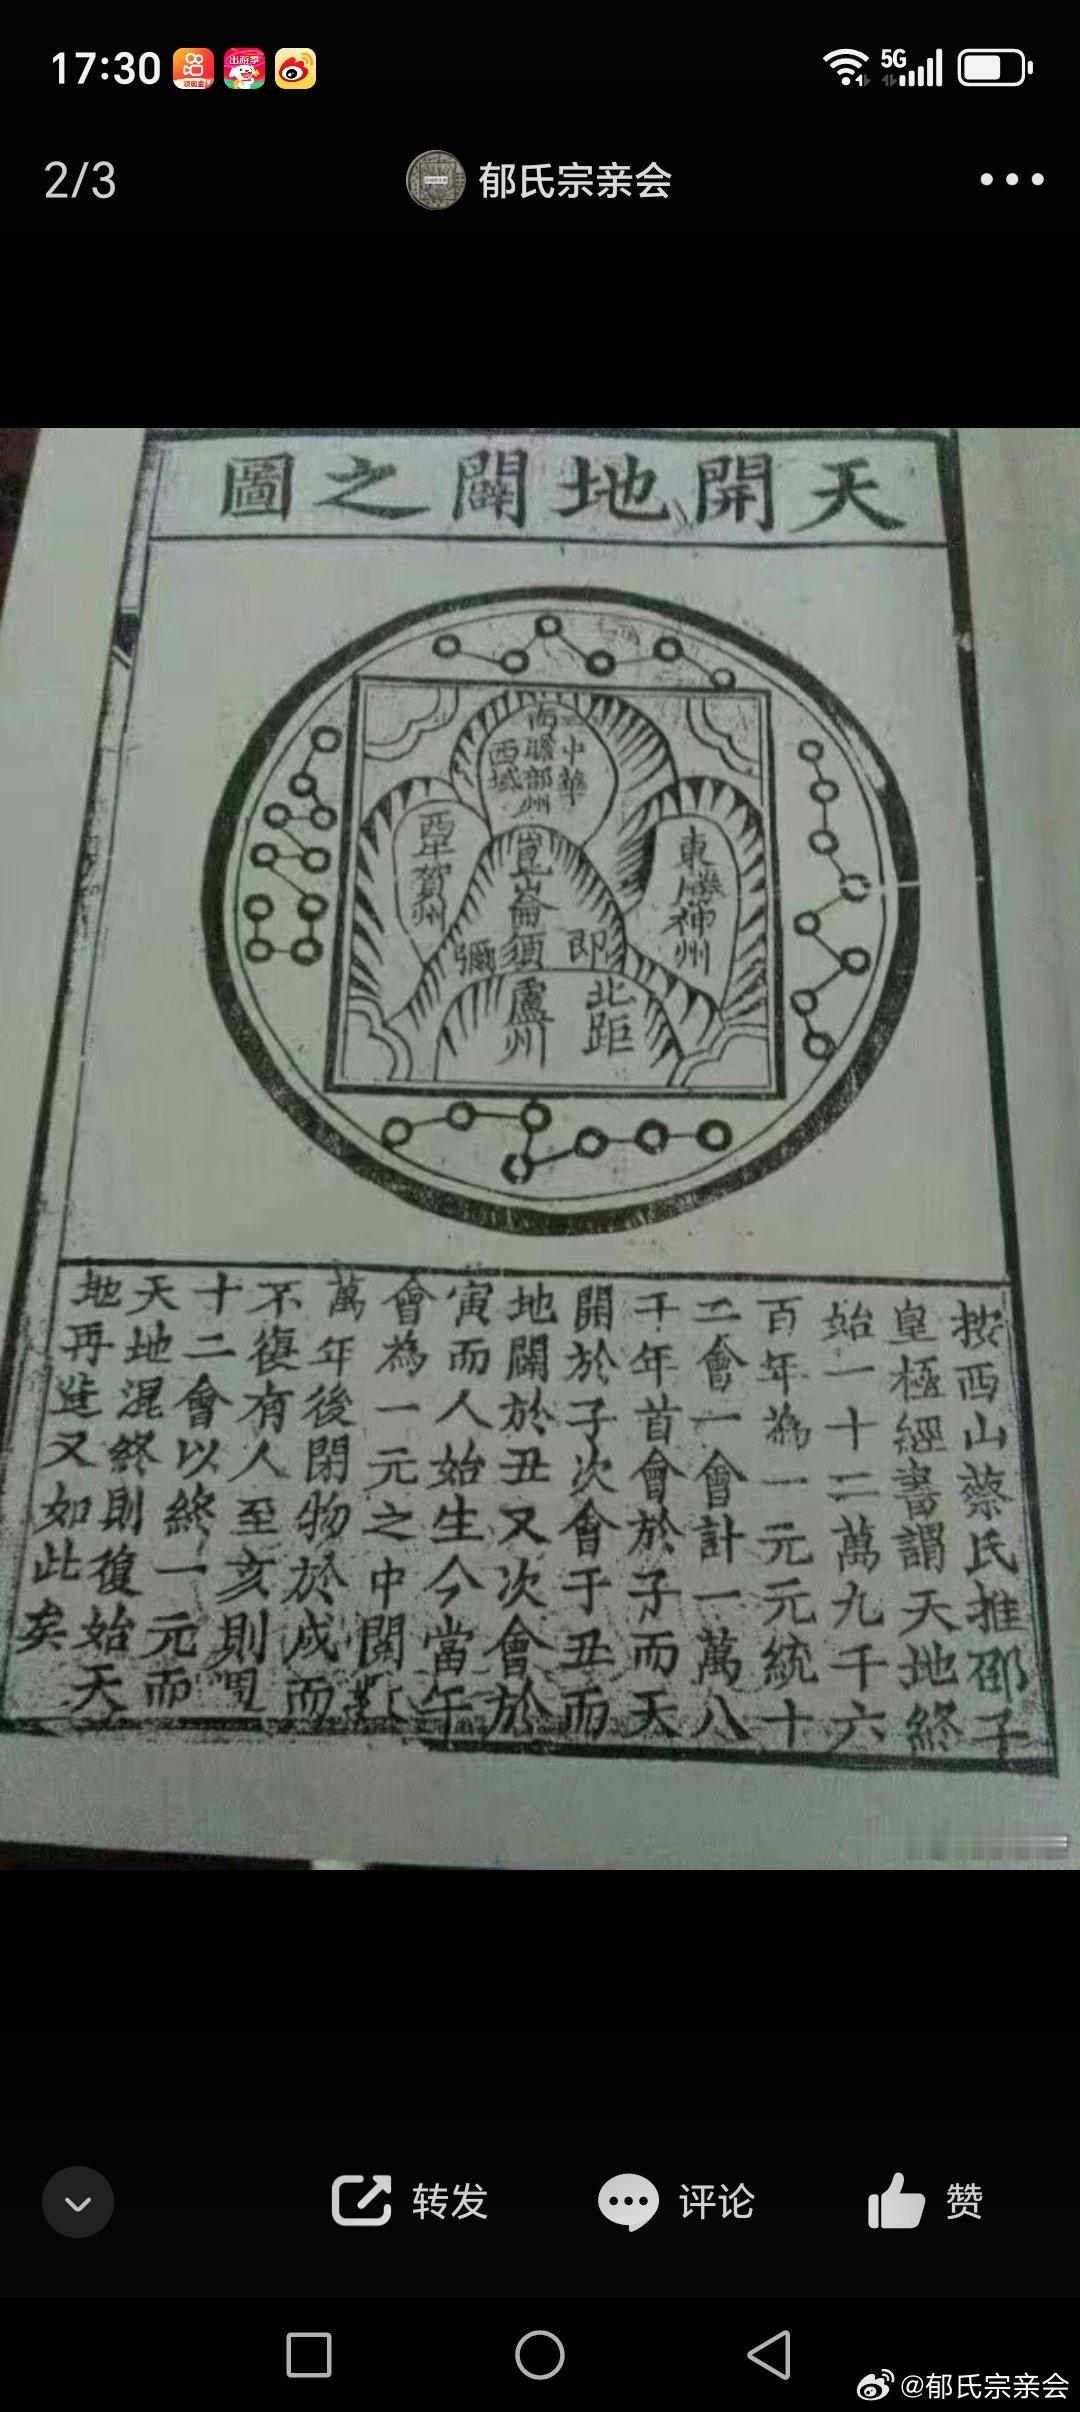 17:30
5G
2/3
郁氏宗亲会
天開地闢之圖
中華
南瞻部州
西域
東勝神州
西牛賀州
崑崙
即須彌
北距
盧州
按西山蔡氏推邵子
皇極經書謂天地終
始一十二萬九千六
百年為一元元統十
二會一會計一萬八
千年首會於子而天
開於子次會于丑而
地闢於丑又次會於
寅而人始生今當午
會為一元之中閱
萬年後閉物於戌而
不復有人至亥則
十二會以終一元而
天地混終則復始天
地再造又如此矣
转发
评论
赞
@郁氏宗亲会